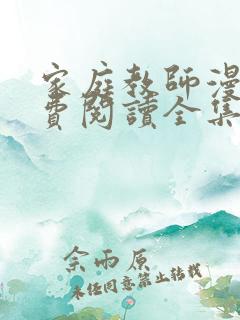 家庭教師漫
費閱讀全集
余雨原
未经同意禁止转载